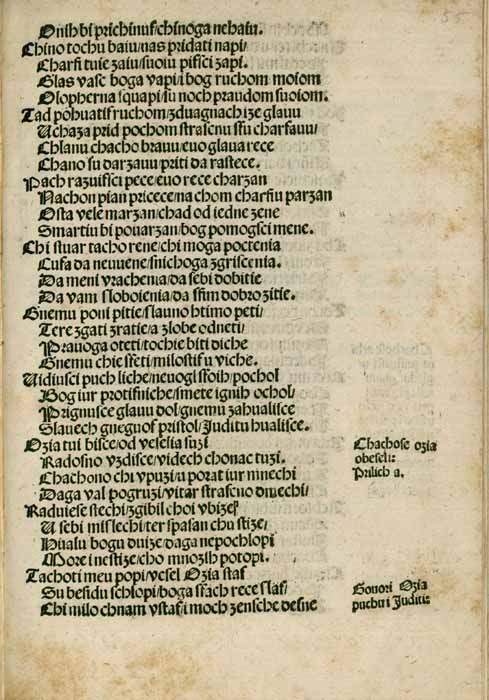 Onih bi prichinuſ/chinoga nehaiu.
Chino tochu baiu/nas pridati napi/
Charſi tuie zaiu/suoiu piſſci zapi.
Glas vasc boga vapi/i bog ruchom moiom
Olopherna ſquapi/ſu noch praudom suoiom.
Tad pohuatiſ ruchom/zduagnach ize glauu
Uchaza prid pochom straſcnu ſſu charſauu/
Chlanu chacho brauu/euo glaua rece
Chano su darzauu/priti da rastece.
Pach razuiſſci pece/euo rece charzan
Nachon pian pricece/na chom charſiu parzan
Osta vele marzan/chad od iedne zene
Smartiu bi pouarzan/bog pomogſci mene.
Chi stuar tacho rene/chi moga poctenia
Cuſa da neuuene/ſnichoga zgriscenia.
Da meni vrachenia/da sebi dobitie
Da vam sloboienia/da ſſim dobro zitie.
Gnemu poni pitie/slauno htimo peti/
Tere zgati zratie/a zlobe odneti/
Prauoga oteti/tochie biti diche
Gnemu chie ſſeti/milostiſ u viche.
Uidiuſci puch liche/neuogi ſſoih/pochol
Bog iur protiſniche/ſmete ignih ochol/
Prignuſce glauu dol/gnemu zahualisce
Slauech gneguoſ pristol/Juditu hualisce.
Ozia tui bisce/od veselia suzi
Radosno vzdisce/videch chonac tuzi.
Chachono chi vpuzi/u porat iur mnechi
Daga val pogruzi/vitar straſcno dmechi/
Raduiese stechi/zgibil choi vbizeſ
U sebi mislechi/ter spaſan chu stize/
Hualu bogu duize/daga nepochlopi
More i nestize/cho mnozih potopi.
Tachoti meu popi/vesel Ozia staſ
Su besidu schlopi/boga sſach rece slaſ/
Chi milo chnam vstaſ/i moch zensche desne
55
Chachose ozia
obeseli:
Prilich a.
Gouori Ozia
puchu i Juditi: